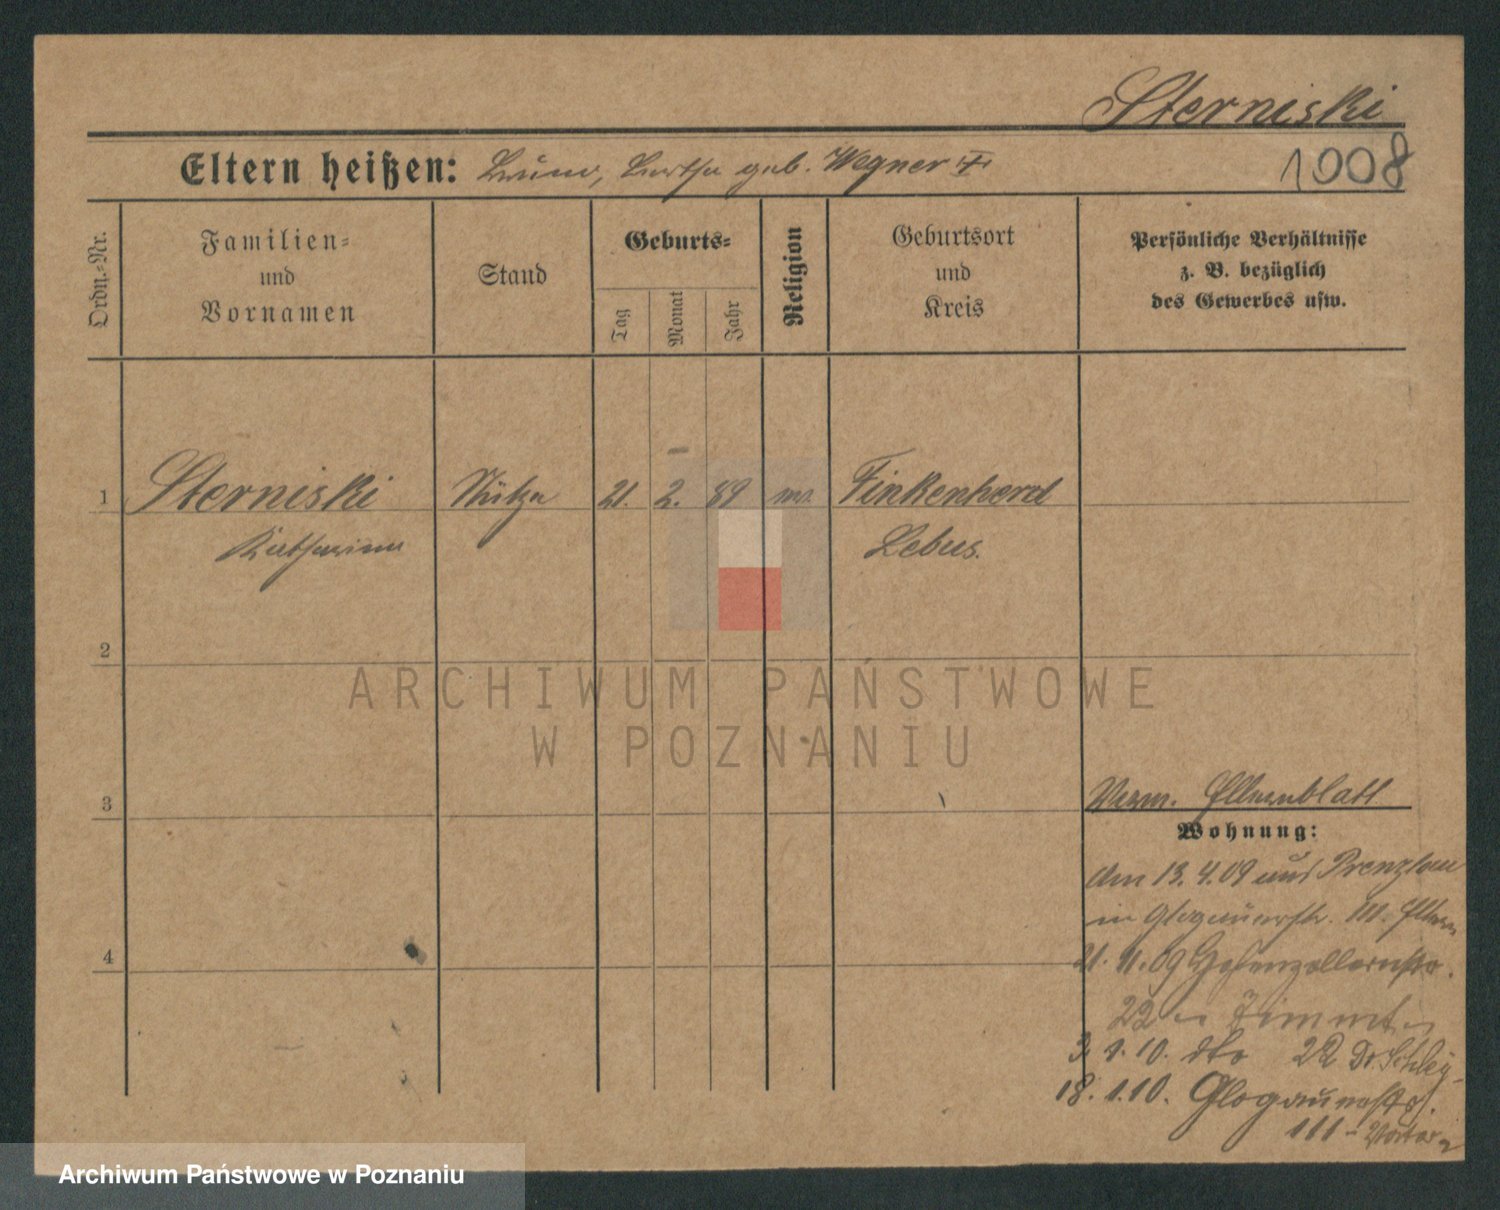 Sterniski
1008
Eltern heißen: geb. Wegner
Ordn.-Nr.
Familien-
und
Vornamen
Stand
Geburts-
Tag
Monat
Jahr
Religion
Geburtsort
und
Kreis
Persönliche Verhältnisse
z. B. bezüglich
des Gewerbes usw.
1 Sterniski Stütze 21. 2. 89 Finkenherd
Katharina Lebus.
2
3
4
Verm. Elternblatt
Wohnung:
Am 13.4.09 aus Prenzlau
in Glogauerstr. 111. Eltern
21.11.09 Hohenzollernstr.
22 Zimmt
3.1.10. dto 22
18.1.10. Glogauerstr.
111
ARCHIWUM PAŃSTWOWE
W POZNANIU
Archiwum Państwowe w Poznaniu